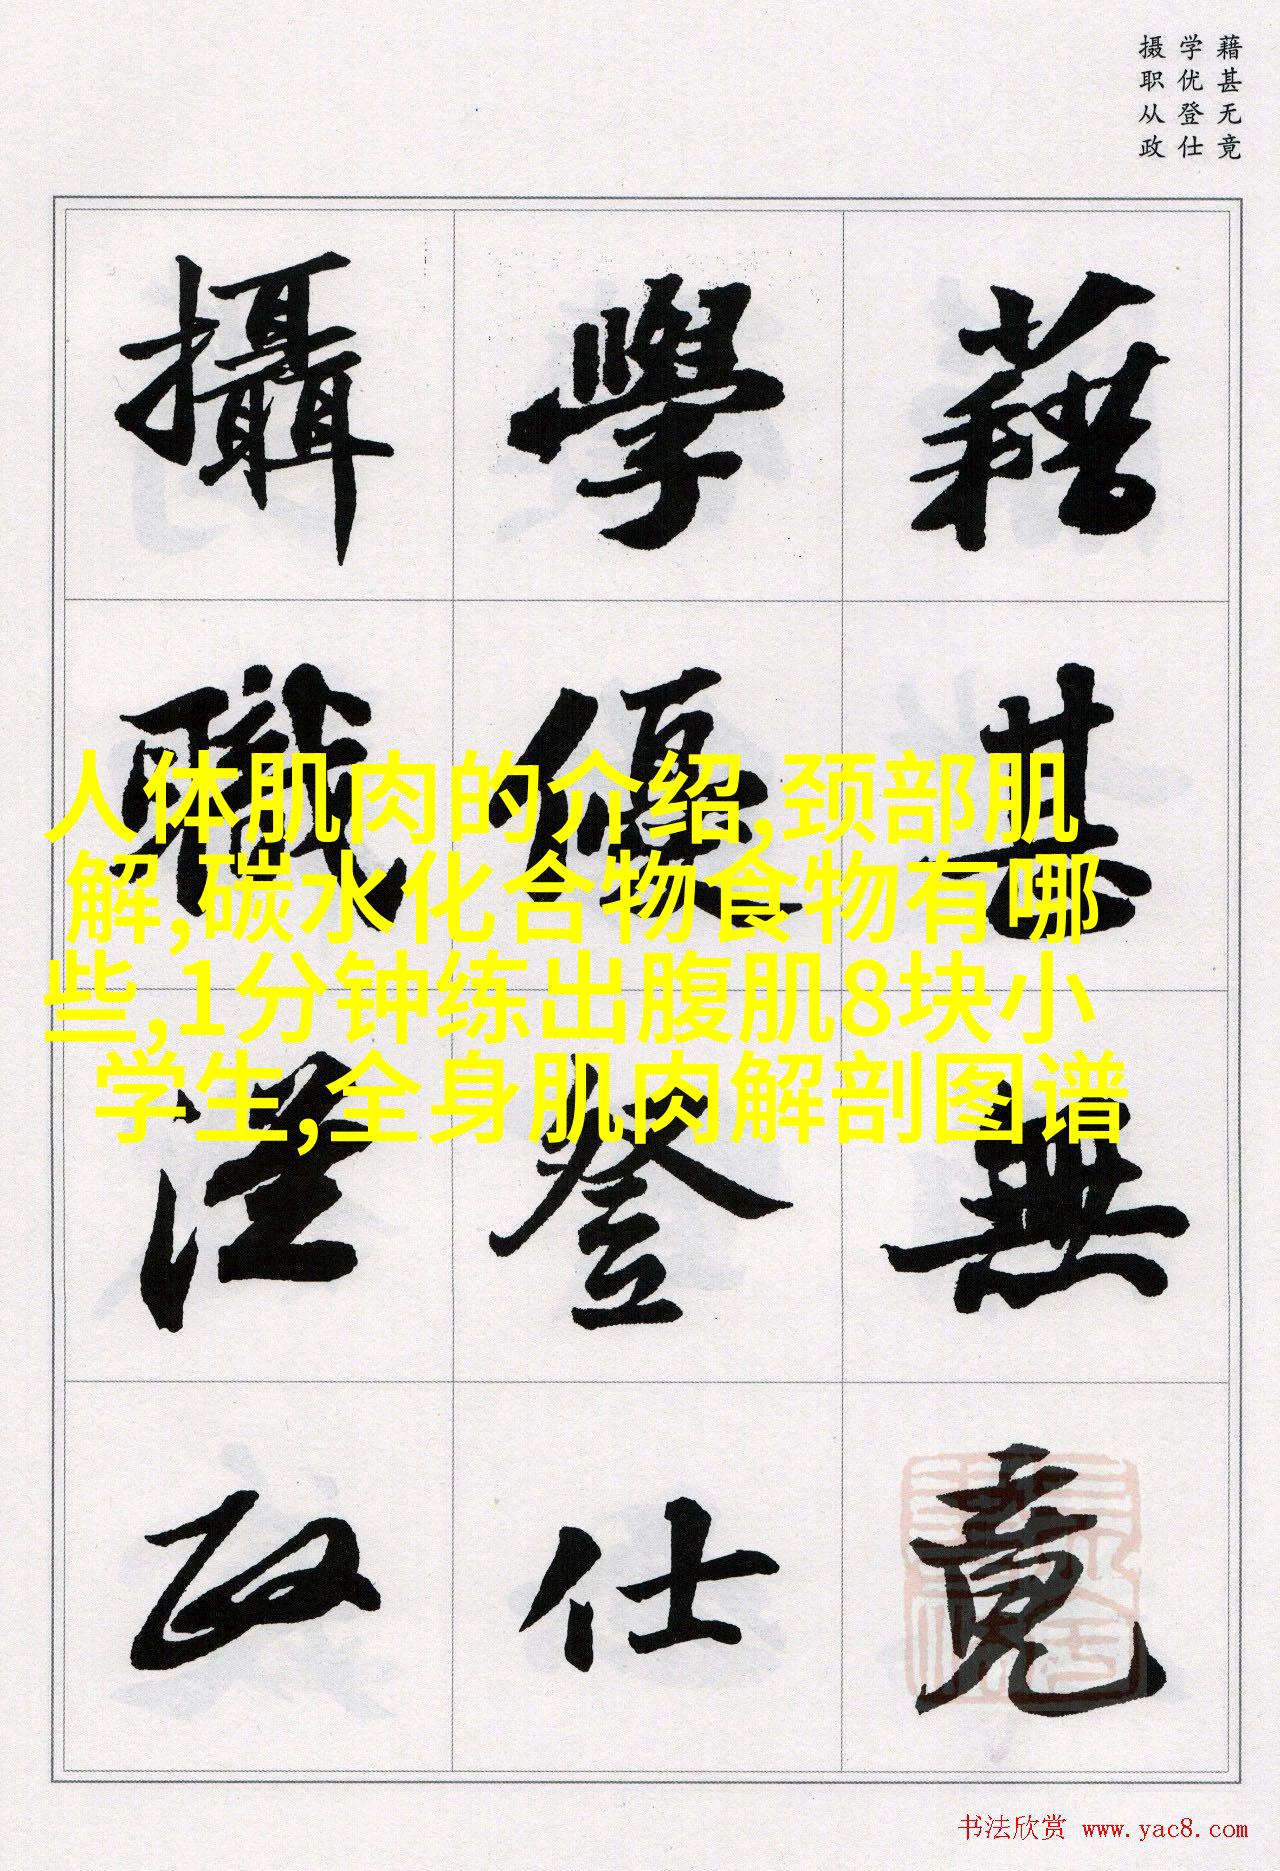 藉甚无竟
学优登仕
摄职从政
藉甚無竟
學優登仕
攝職從政
人体肌肉的介绍,颈部肌
解,碳水化合物食物有哪
些,1分钟练出腹肌8块小
学生,全身肌肉解剖图谱
书法欣赏 www.yac8.com